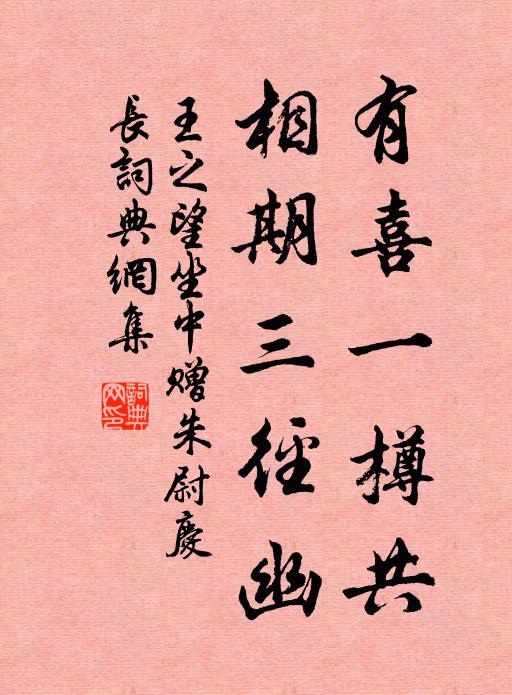 有喜一樽共
相期三徑幽
王之望坐中贈朱尉慶
長詞典網集
詞典
网印